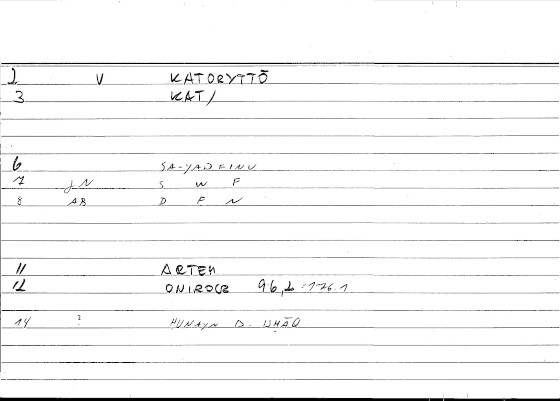 2 V KATORYTTŌ
3 KAT/
6 SA-YADFINU
7 JN S W F
8 AB D F N
11 ARTEM
12 ONIROCR 96,2:176.1
14 ? HUNAYN B. ISḤĀQ